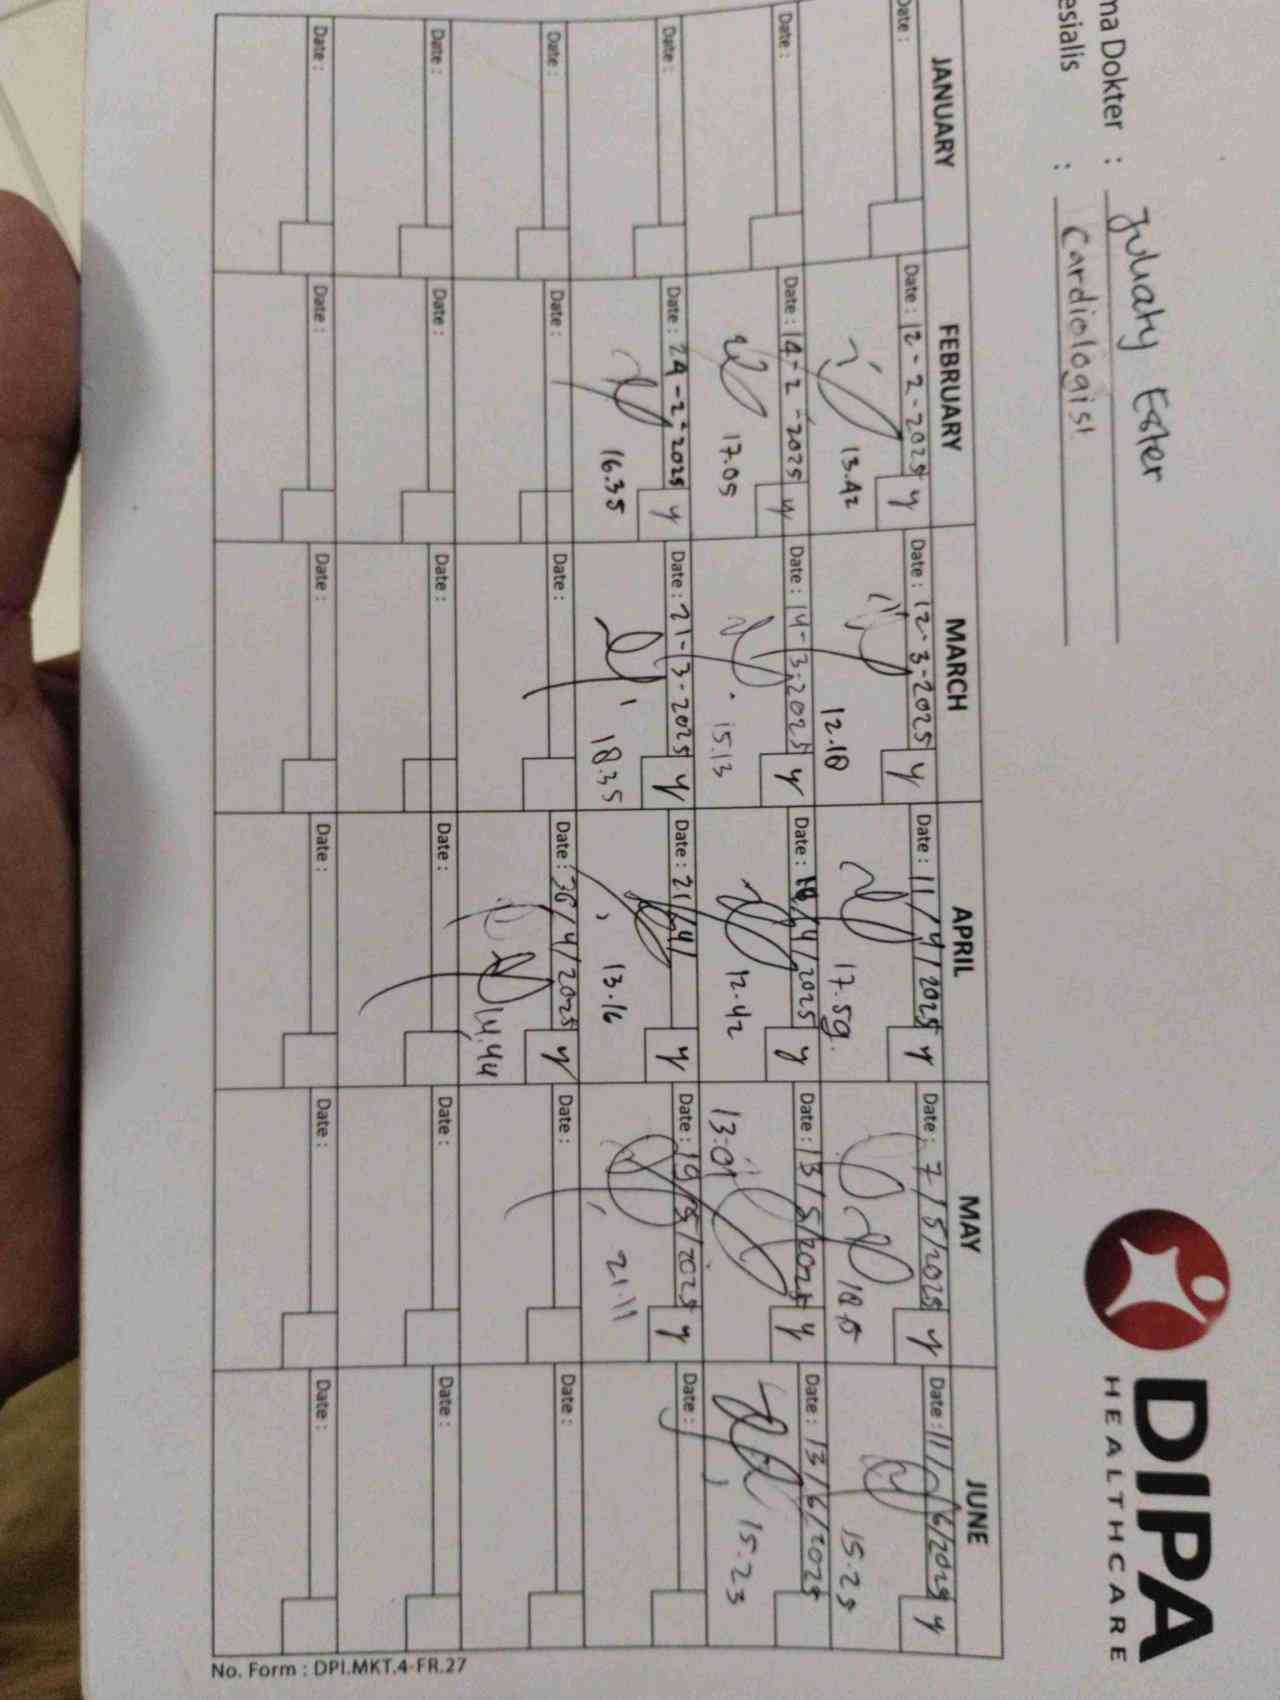 DIPA
HEALTHCARE
ma Dokter : Juliaty Ester
esialis : Cardiologist
JANUARY FEBRUARY MARCH APRIL MAY JUNE
Date : Date : 12-2-2025 y Date : 12-3-2025 y Date : 11/4/2025 y Date : 7/5/2025 y Date : 11/6/2025 y
13.42 12.18 17.59. 15.25
Date : Date : 14-2-2025 y Date : 14-3-2025 y Date : /4/2025 y Date : 13/5/2025 y Date : 13/6/2025
17.05 15.13 12.42 13.01 15.23
Date : Date : 24-2-2025 y Date : 21-3-2025 y Date : 21/4/ y Date : 19/5/2025 y Date :
16.35 18.35 13.16 21.11
Date : Date : Date : Date : 30/4/2025 y Date : Date :
14.44
Date : Date : Date : Date : Date : Date :
Date : Date : Date : Date : Date : Date :
No. Form : DPI.MKT.4-FR.27